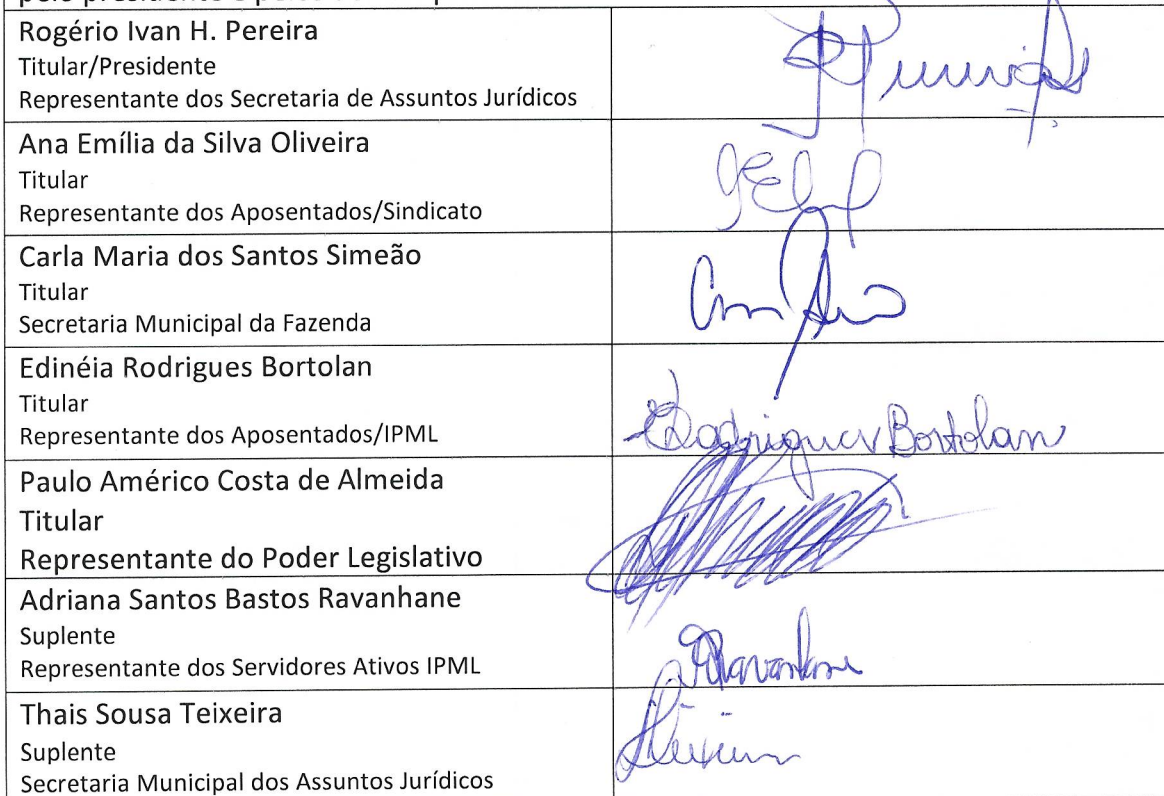 Rogério Ivan H. Pereira
Titular/Presidente
Representante dos Secretaria de Assuntos Jurídicos
Ana Emília da Silva Oliveira
Titular
Representante dos Aposentados/Sindicato
Carla Maria dos Santos Simeão
Titular
Secretaria Municipal da Fazenda
Edinéia Rodrigues Bortolan
Titular
Representante dos Aposentados/IPML
Rodrigues Bortolan
Paulo Américo Costa de Almeida
Titular
Representante do Poder Legislativo
Adriana Santos Bastos Ravanhane
Suplente
Representante dos Servidores Ativos IPML
Ravanhane
Thais Sousa Teixeira
Suplente
Secretaria Municipal dos Assuntos Jurídicos